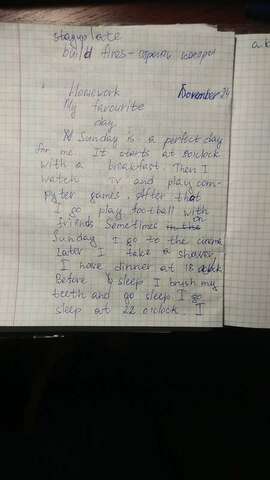 stagyolate
build fires - строить костры
Homework November 24
My favourite
day
Sunday is a perfect day
for me. It starts at 8 o'clock
with a breakfast. Then I
watch TV and play com-
pyter games. After that
I go play football with
friends Sometimes in the on
Sunday I go to the cinema
Later I take a shower,
I have dinner at 18 o'clock
Before sleep I brush my
teeth and go sleep I go
sleep at 22 o'clock. I